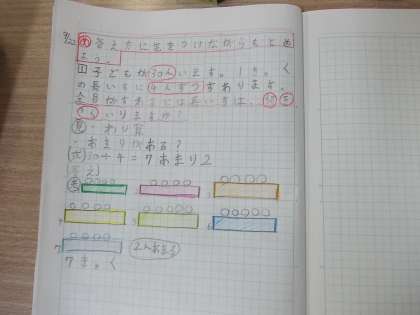 9/22 め 答え方に気をつけながらもとめ
よう。
1 子どもが30人います。1きゃく
の長いすに4人ずつすわります。
全員がすわるには長いすは、何き
ゃくいりますか?
見 ・わり算
・あまりがある?
(式) 30÷4=7あまり2
答え
考 1 2 3
4 5 6
7 2人あまる
7きゃく